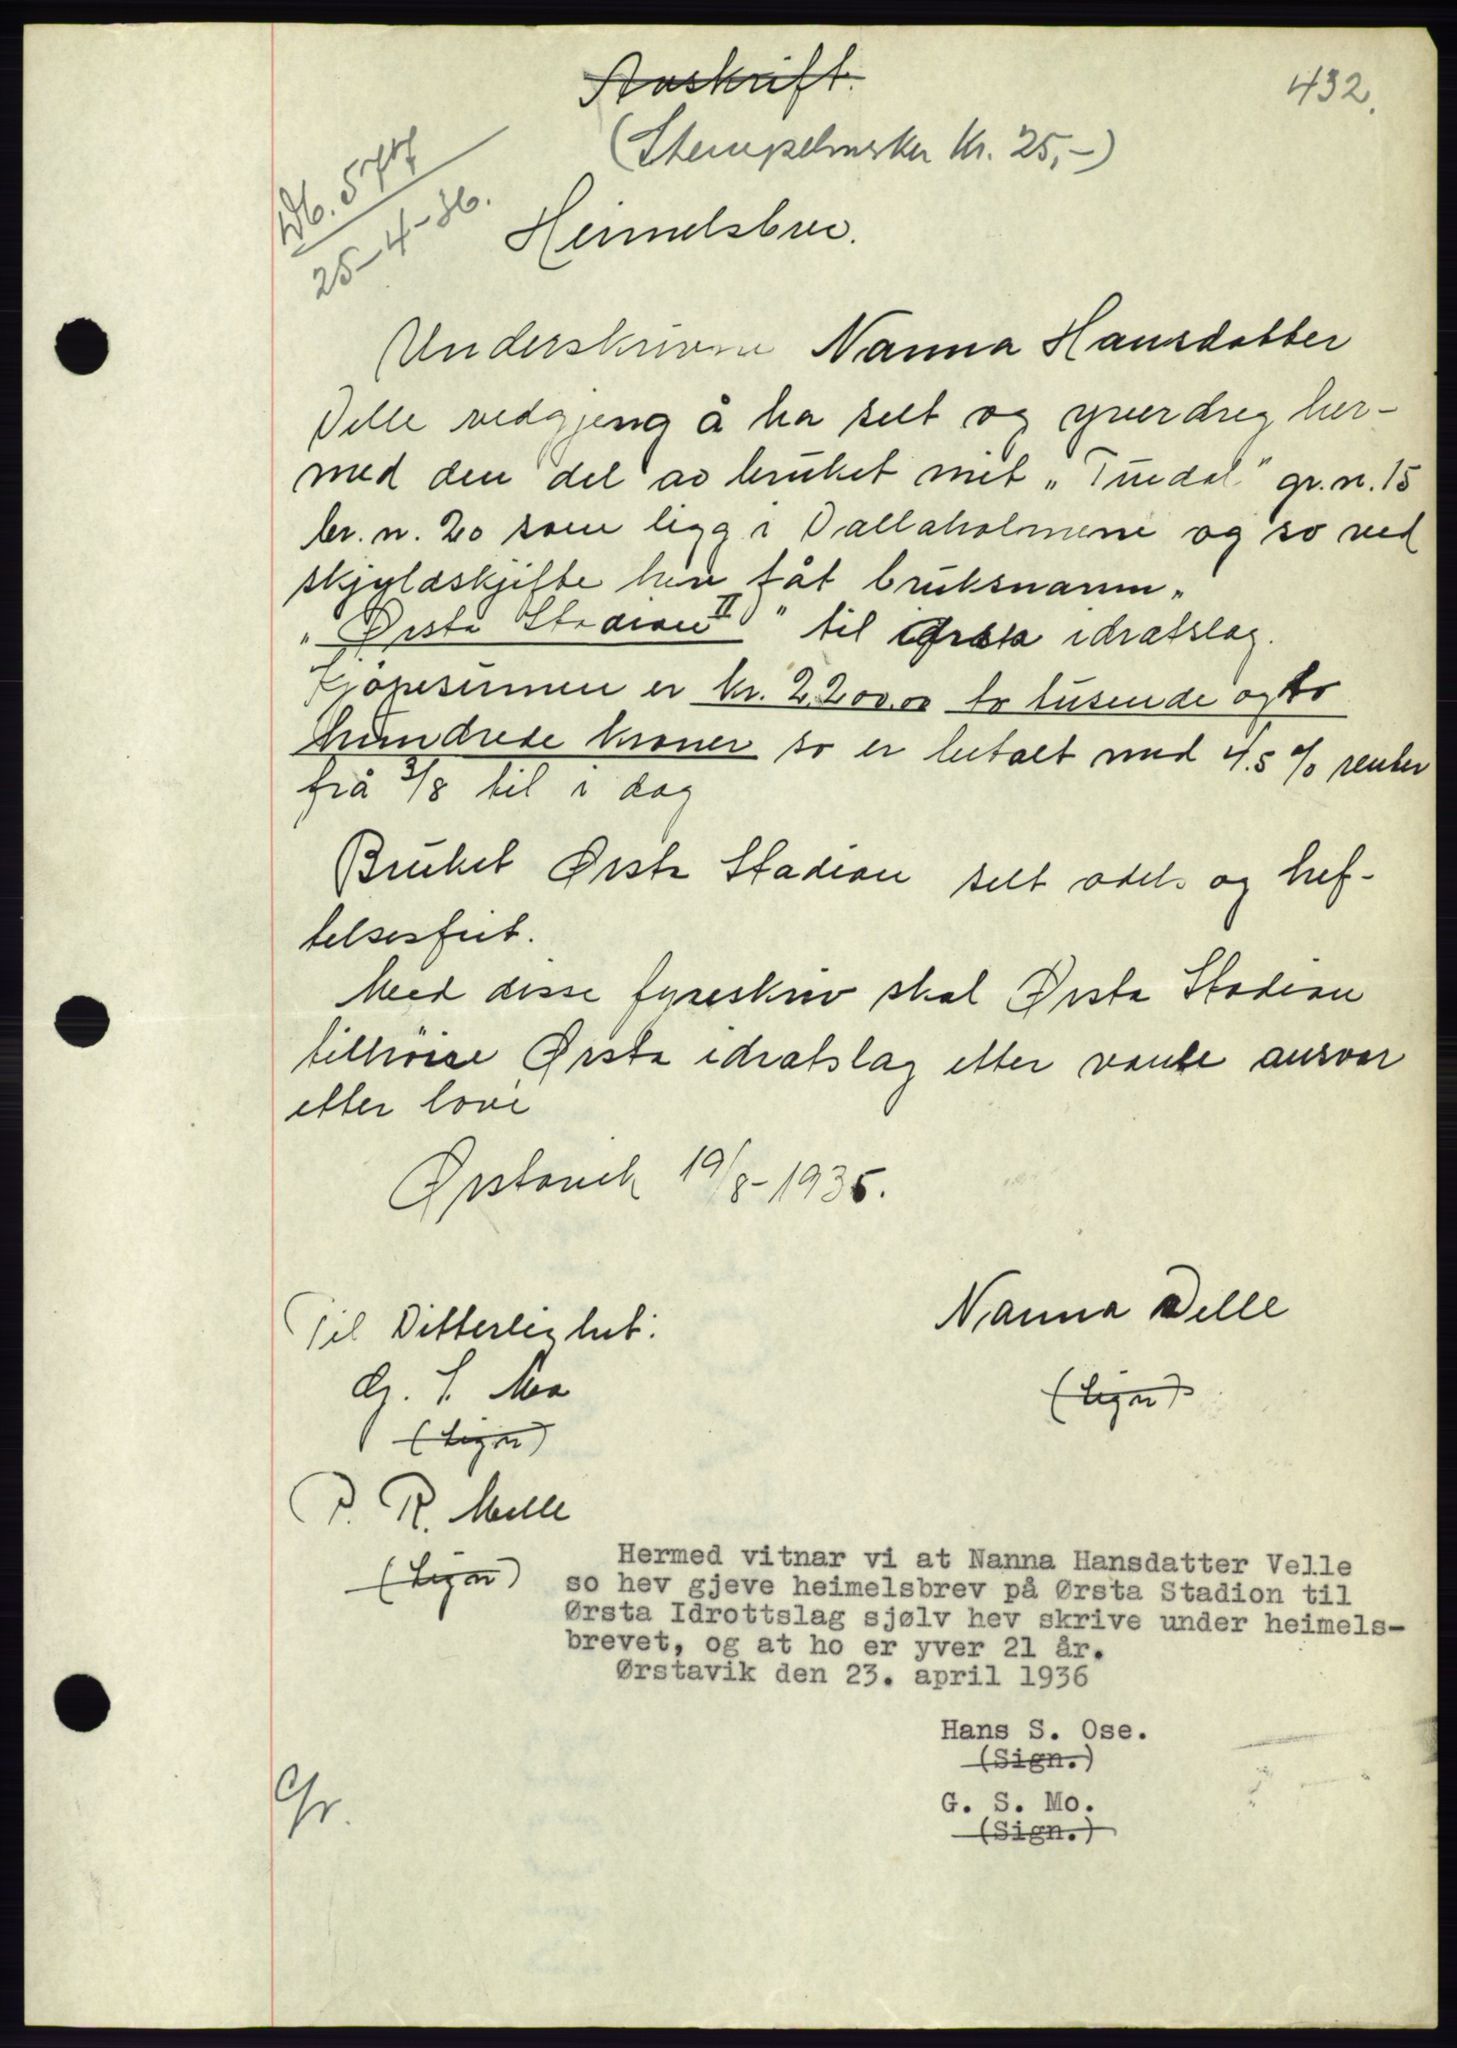 432.
Avskrift.
(Stempelmerker kr. 25,-)
Db. 577
25-4-36.
Heimelsbrev.
Underskrivne Nanna Hansdatter
Velle vedgjeng å ha selt og yverdreg her-
med den del av bruket mit „Tuedal" gr.n. 15
br.n. 20 som ligg i Vallaholmene og so ved
skjyldskjifte hev fåt bruksnamn„
„Ørsta Stadion II" til Ørsta idratslag.
Kjøpesummen er kr. 2200.00 to tusende og to
hundrede kroner so er betalt med 4.5 % renter
frå 3/8 til i dag
Bruket Ørsta Stadion selt odels og hef-
telsesfrit.
Med disse fyreskriv skal Ørsta Stadion
tilhøire Ørsta idratslag etter vanle ansvar
etter lovi
Ørstavik 19/8-1935.
Nanna Velle
(Sign)
Til Vitterlighet:
G. S. Mo
(Sign)
P. R. Melle
(Sign)
Hermed vitnar vi at Nanna Hansdatter Velle
so hev gjeve heimelsbrev på Ørsta Stadion til
Ørsta Idrottslag sjølv hev skrive under heimels-
brevet, og at ho er yver 21 år.
Ørstavik den 23. april 1936
Hans S. Ose.
(Sign.)
G. S. Mo.
(Sign.)
Gr.